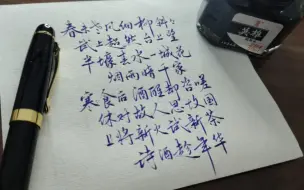 春未老风细柳斜斜
试上超然台上望
半壕春水一城花
烟雨暗千家
寒食后酒醒却咨嗟
休对故人思故国
且将新火试新茶
诗酒趁年华
英雄